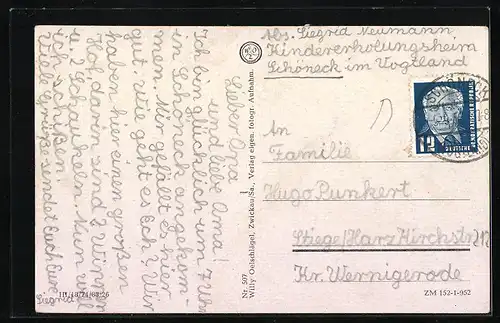 Lieber Opa
und liebe Oma!
Ich bin glücklich um 7 Uhr
in Schöneck angekom-
men. Mir gefällt es hier
gut. Wie geht es Euch? Wir
haben hier einen großen
Hof, darin sind 2 Wippen
u. 2 Schaukeln. Nun will
ich schließen.
Viele Grüße sendet Euch Eure
Siegrid
Abs. Siegrid Neumann
Kindererholungsheim
Schöneck im Vogtland
An
Familie
Hugo Punkert
Stiege/Harz Kirchstr.
Kr. Wernigerode
Nr. 507
Willy Oelschlägel, Zwickau/Sa., Verlag eigen. fotogr. Aufnahm.
ZM 152-1-952
12